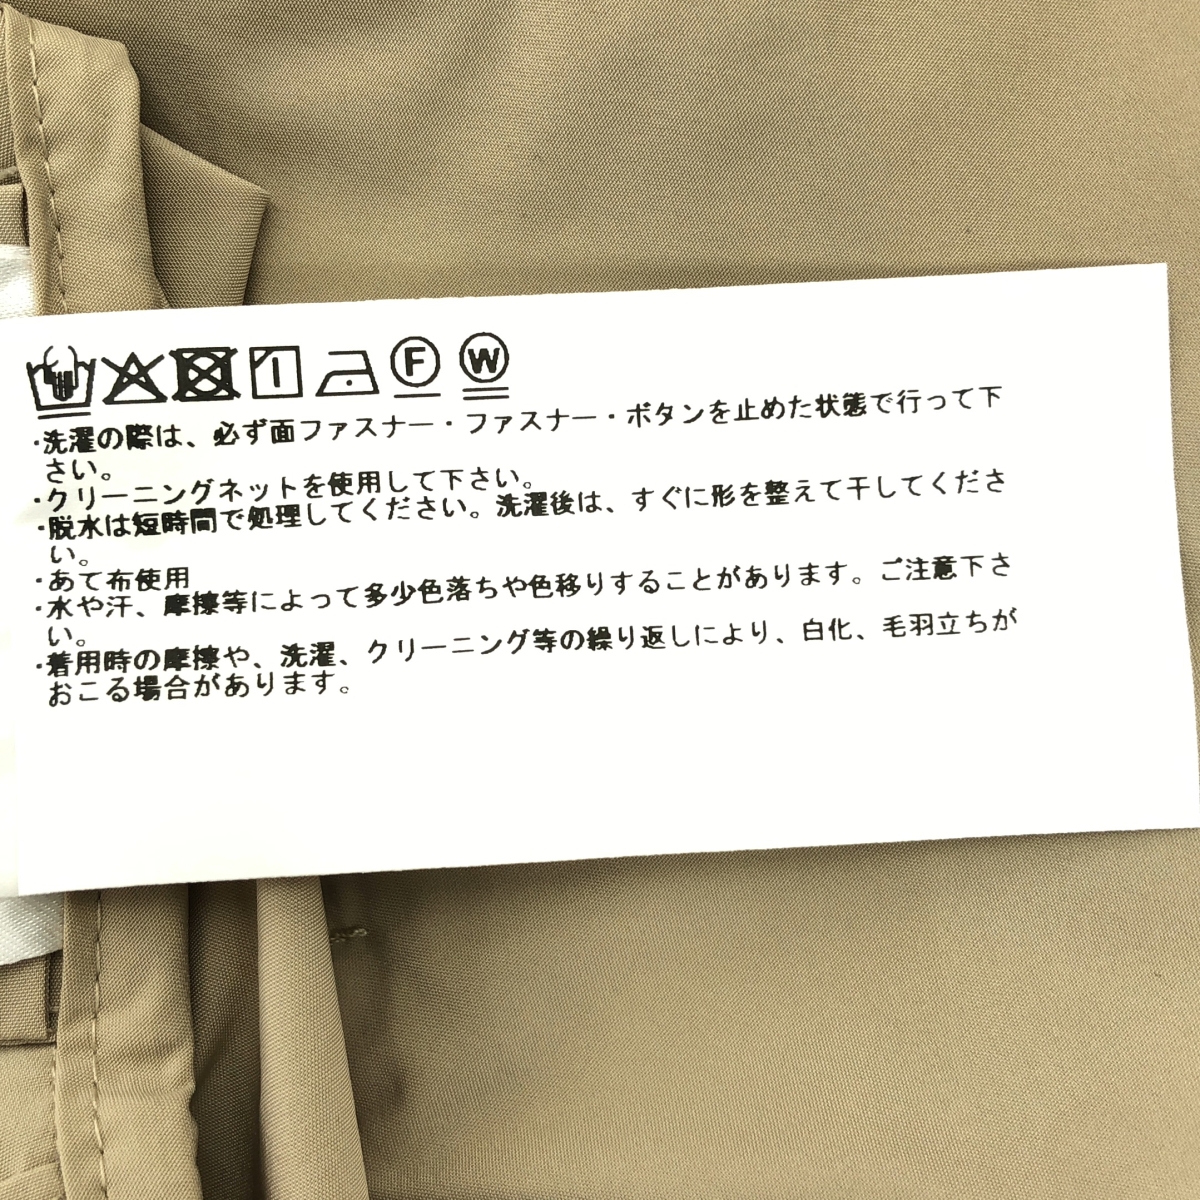 F W
・洗濯の際は、必ず面ファスナー・ファスナー・ボタンを止めた状態で行って下
さい。
・クリーニングネットを使用して下さい。
・脱水は短時間で処理してください。洗濯後は、すぐに形を整えて干してくださ
い。
・あて布使用
・水や汗、摩擦等によって多少色落ちや色移りすることがあります。ご注意下さ
い。
・着用時の摩擦や、洗濯、クリーニング等の繰り返しにより、白化、毛羽立ちが
おこる場合があります。